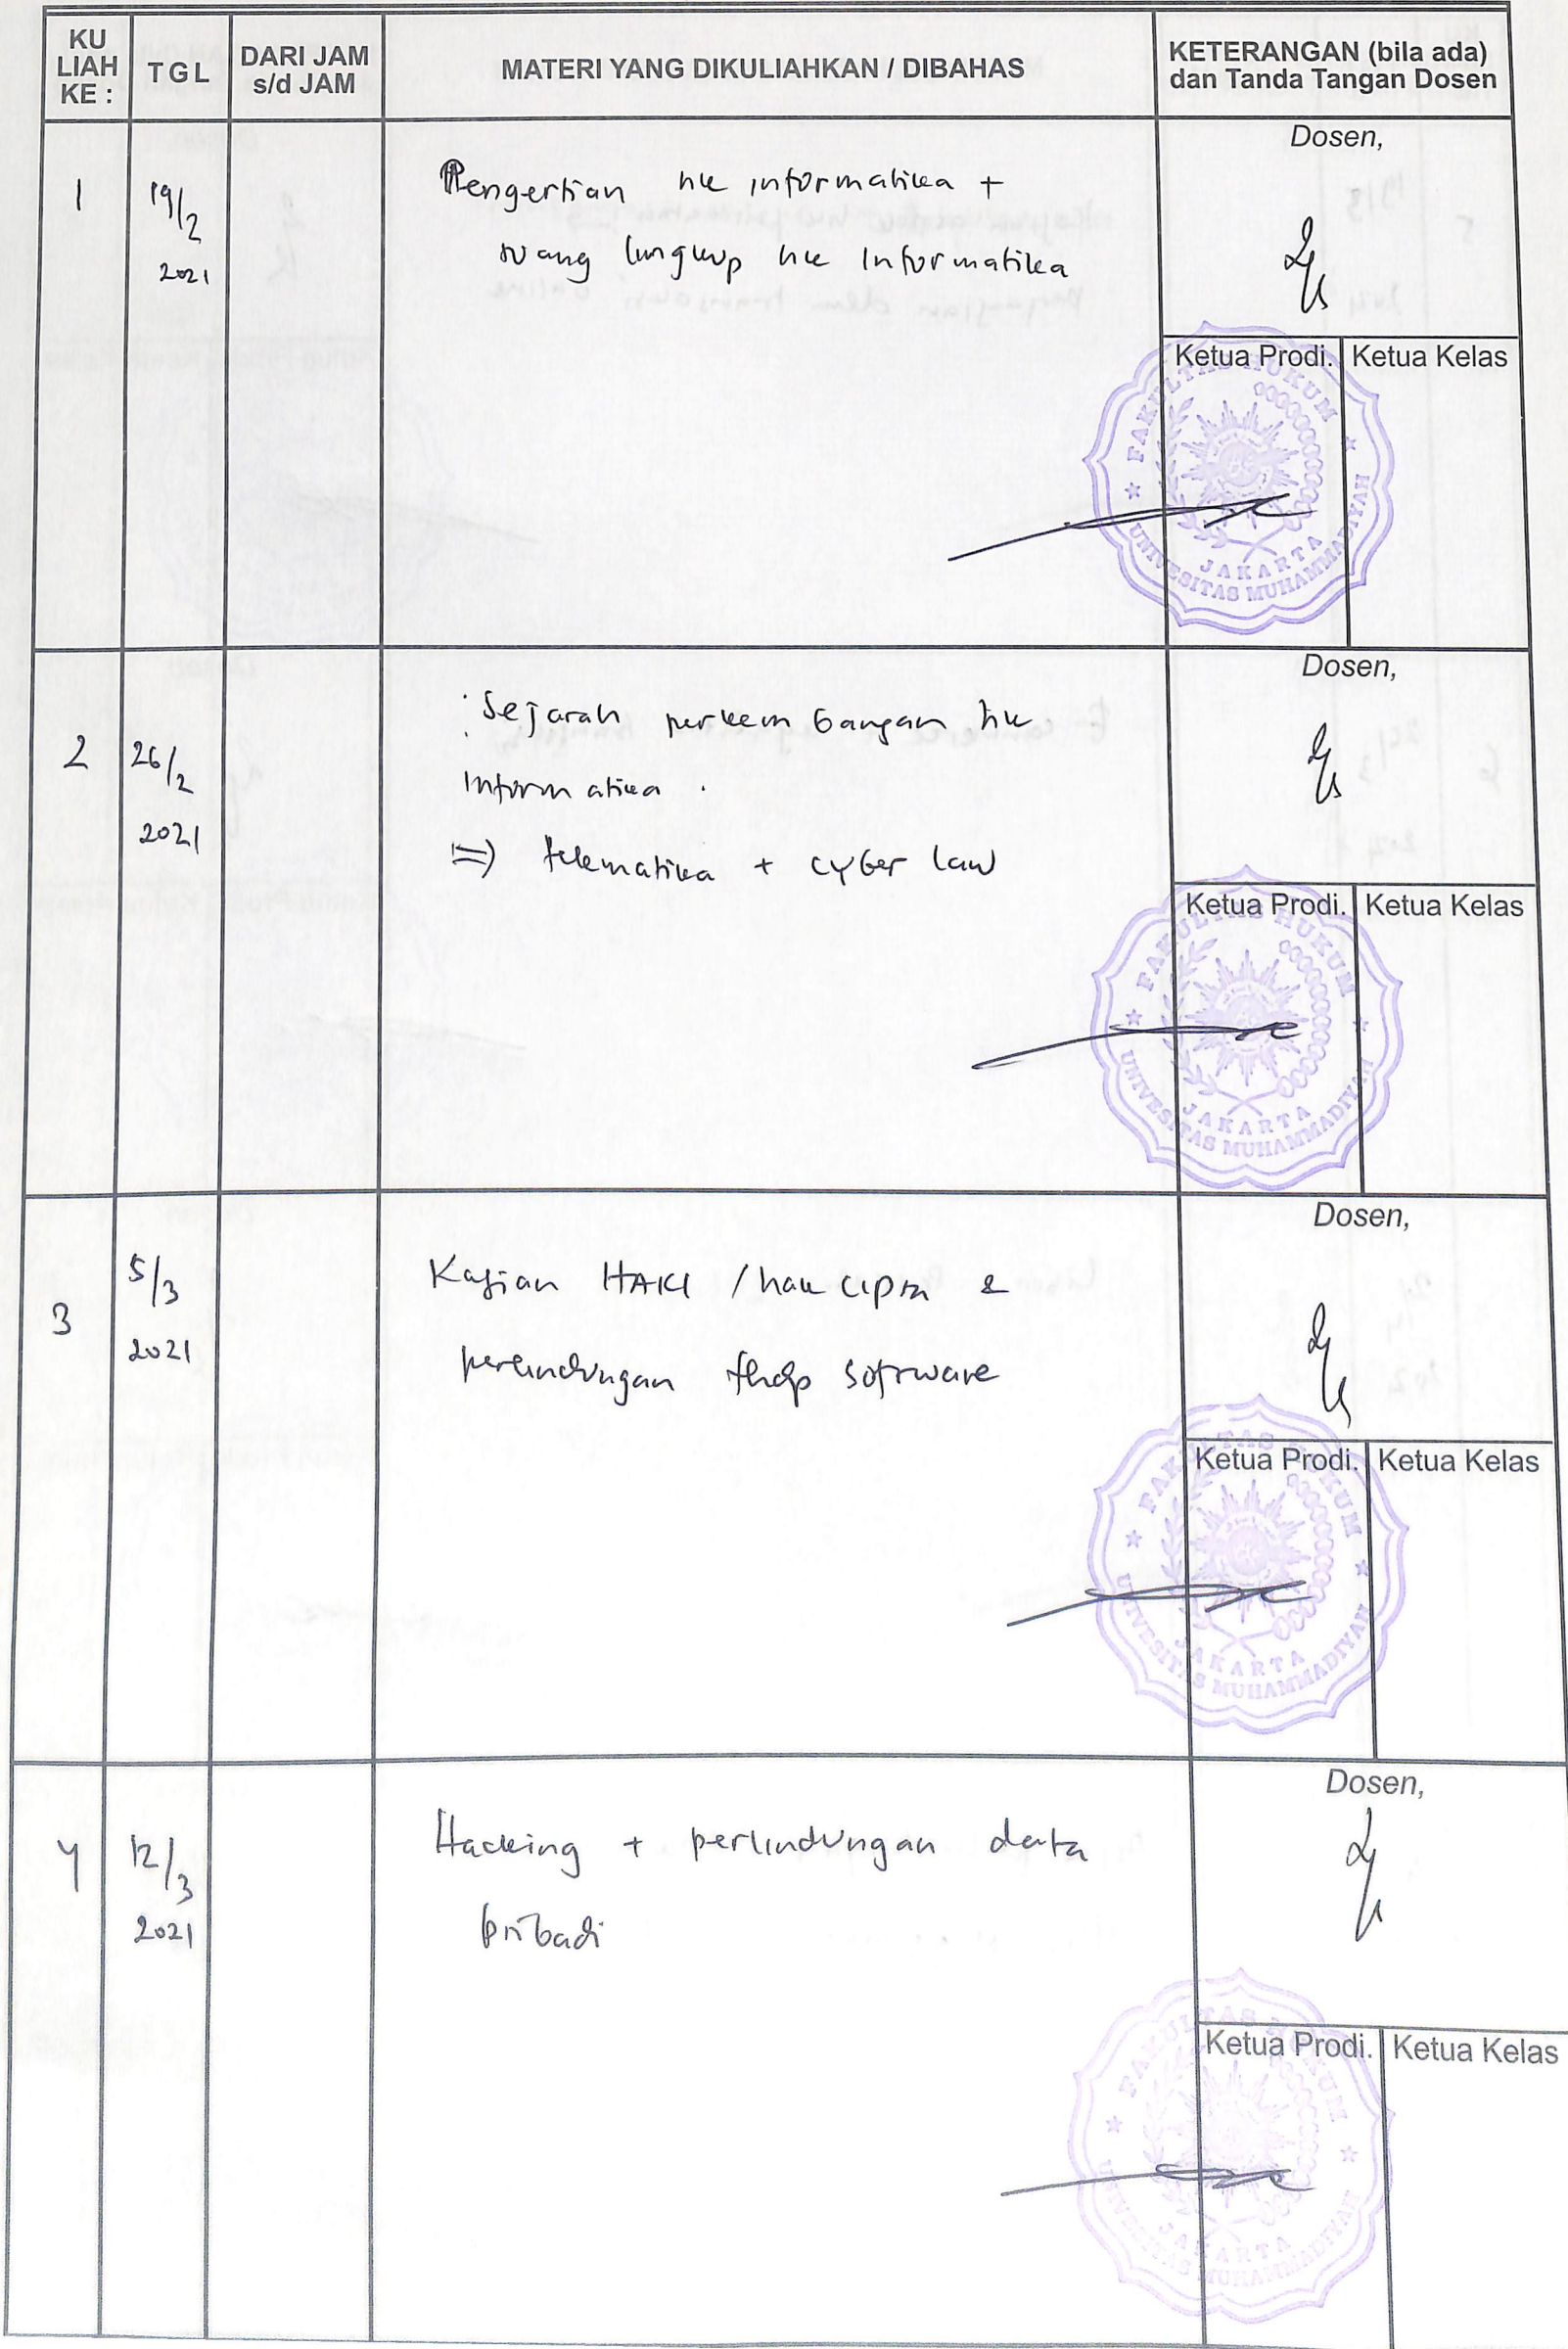 KU
LIAH
KE :
TGL
DARI JAM
s/d JAM
MATERI YANG DIKULIAHKAN / DIBAHAS
KETERANGAN (bila ada)
dan Tanda Tangan Dosen
1
19/2
2021
Pengertian hk informatika +
ruang lingkup hk Informatika
Dosen,
Ketua Prodi.
Ketua Kelas
FAKULTAS HUKUM
UNIVESITAS MUHAMMADIYAH
JAKARTA
2
26/2
2021
Sejarah perkembangan hk
informatika .
=> telematika + cyber law
Dosen,
Ketua Prodi.
Ketua Kelas
FAKULTAS HUKUM
UNIVESITAS MUHAMMADIYAH
JAKARTA
3
5/3
2021
Kajian HAKI / hak cipta &
perlindungan thdp software
Dosen,
Ketua Prodi.
Ketua Kelas
FAKULTAS HUKUM
UNIVESITAS MUHAMMADIYAH
JAKARTA
4
12/3
2021
Hacking + perlindungan data
pribadi
Dosen,
Ketua Prodi.
Ketua Kelas
FAKULTAS HUKUM
UNIVESITAS MUHAMMADIYAH
JAKARTA